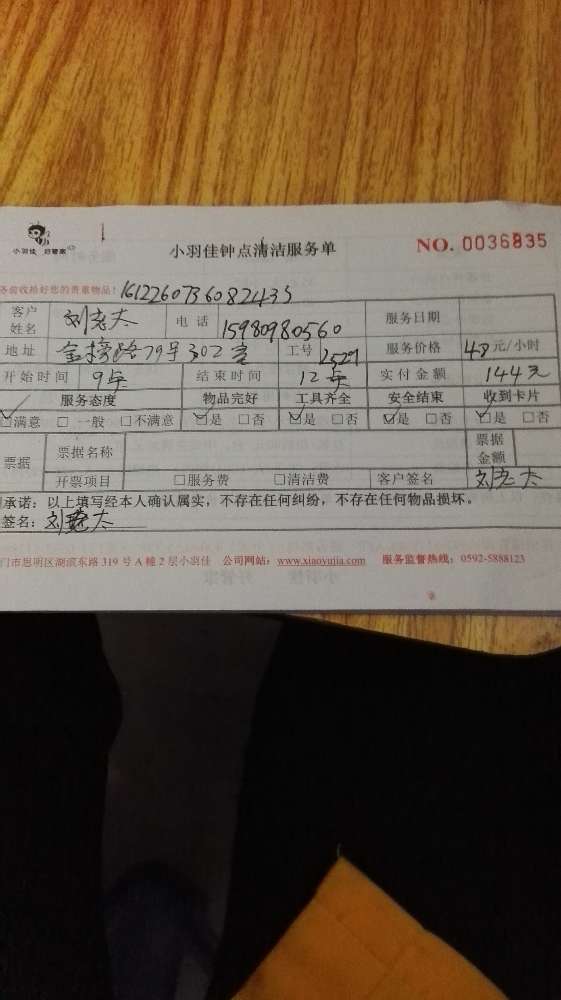 小羽佳 好管家
小羽佳钟点清洁服务单
NO. 0036835
务前收拾好您的贵重物品! 161226073608 2435
客户姓名 刘老太 电话 15980980560 服务日期
地址 金榜路79号302室 工号 2527 服务价格 48元/小时
开始时间 9点 结束时间 12点 实付金额 144元
服务态度 物品完好 工具齐全 安全结束 收到卡片
☑满意 □一般 □不满意 ☑是 □否 ☑是 □否 ☑是 □否 ☑是 □否
票据 票据名称 票据金额
开票项目 □服务费 □清洁费 客户签名 刘老太
承诺：以上填写经本人确认属实，不存在任何纠纷，不存在任何物品损坏。
签名：刘老太
门市思明区湖滨东路 319 号 A 幢 2 层小羽佳 公司网站：www.xiaoyujia.com 服务监督热线：0592-5888123